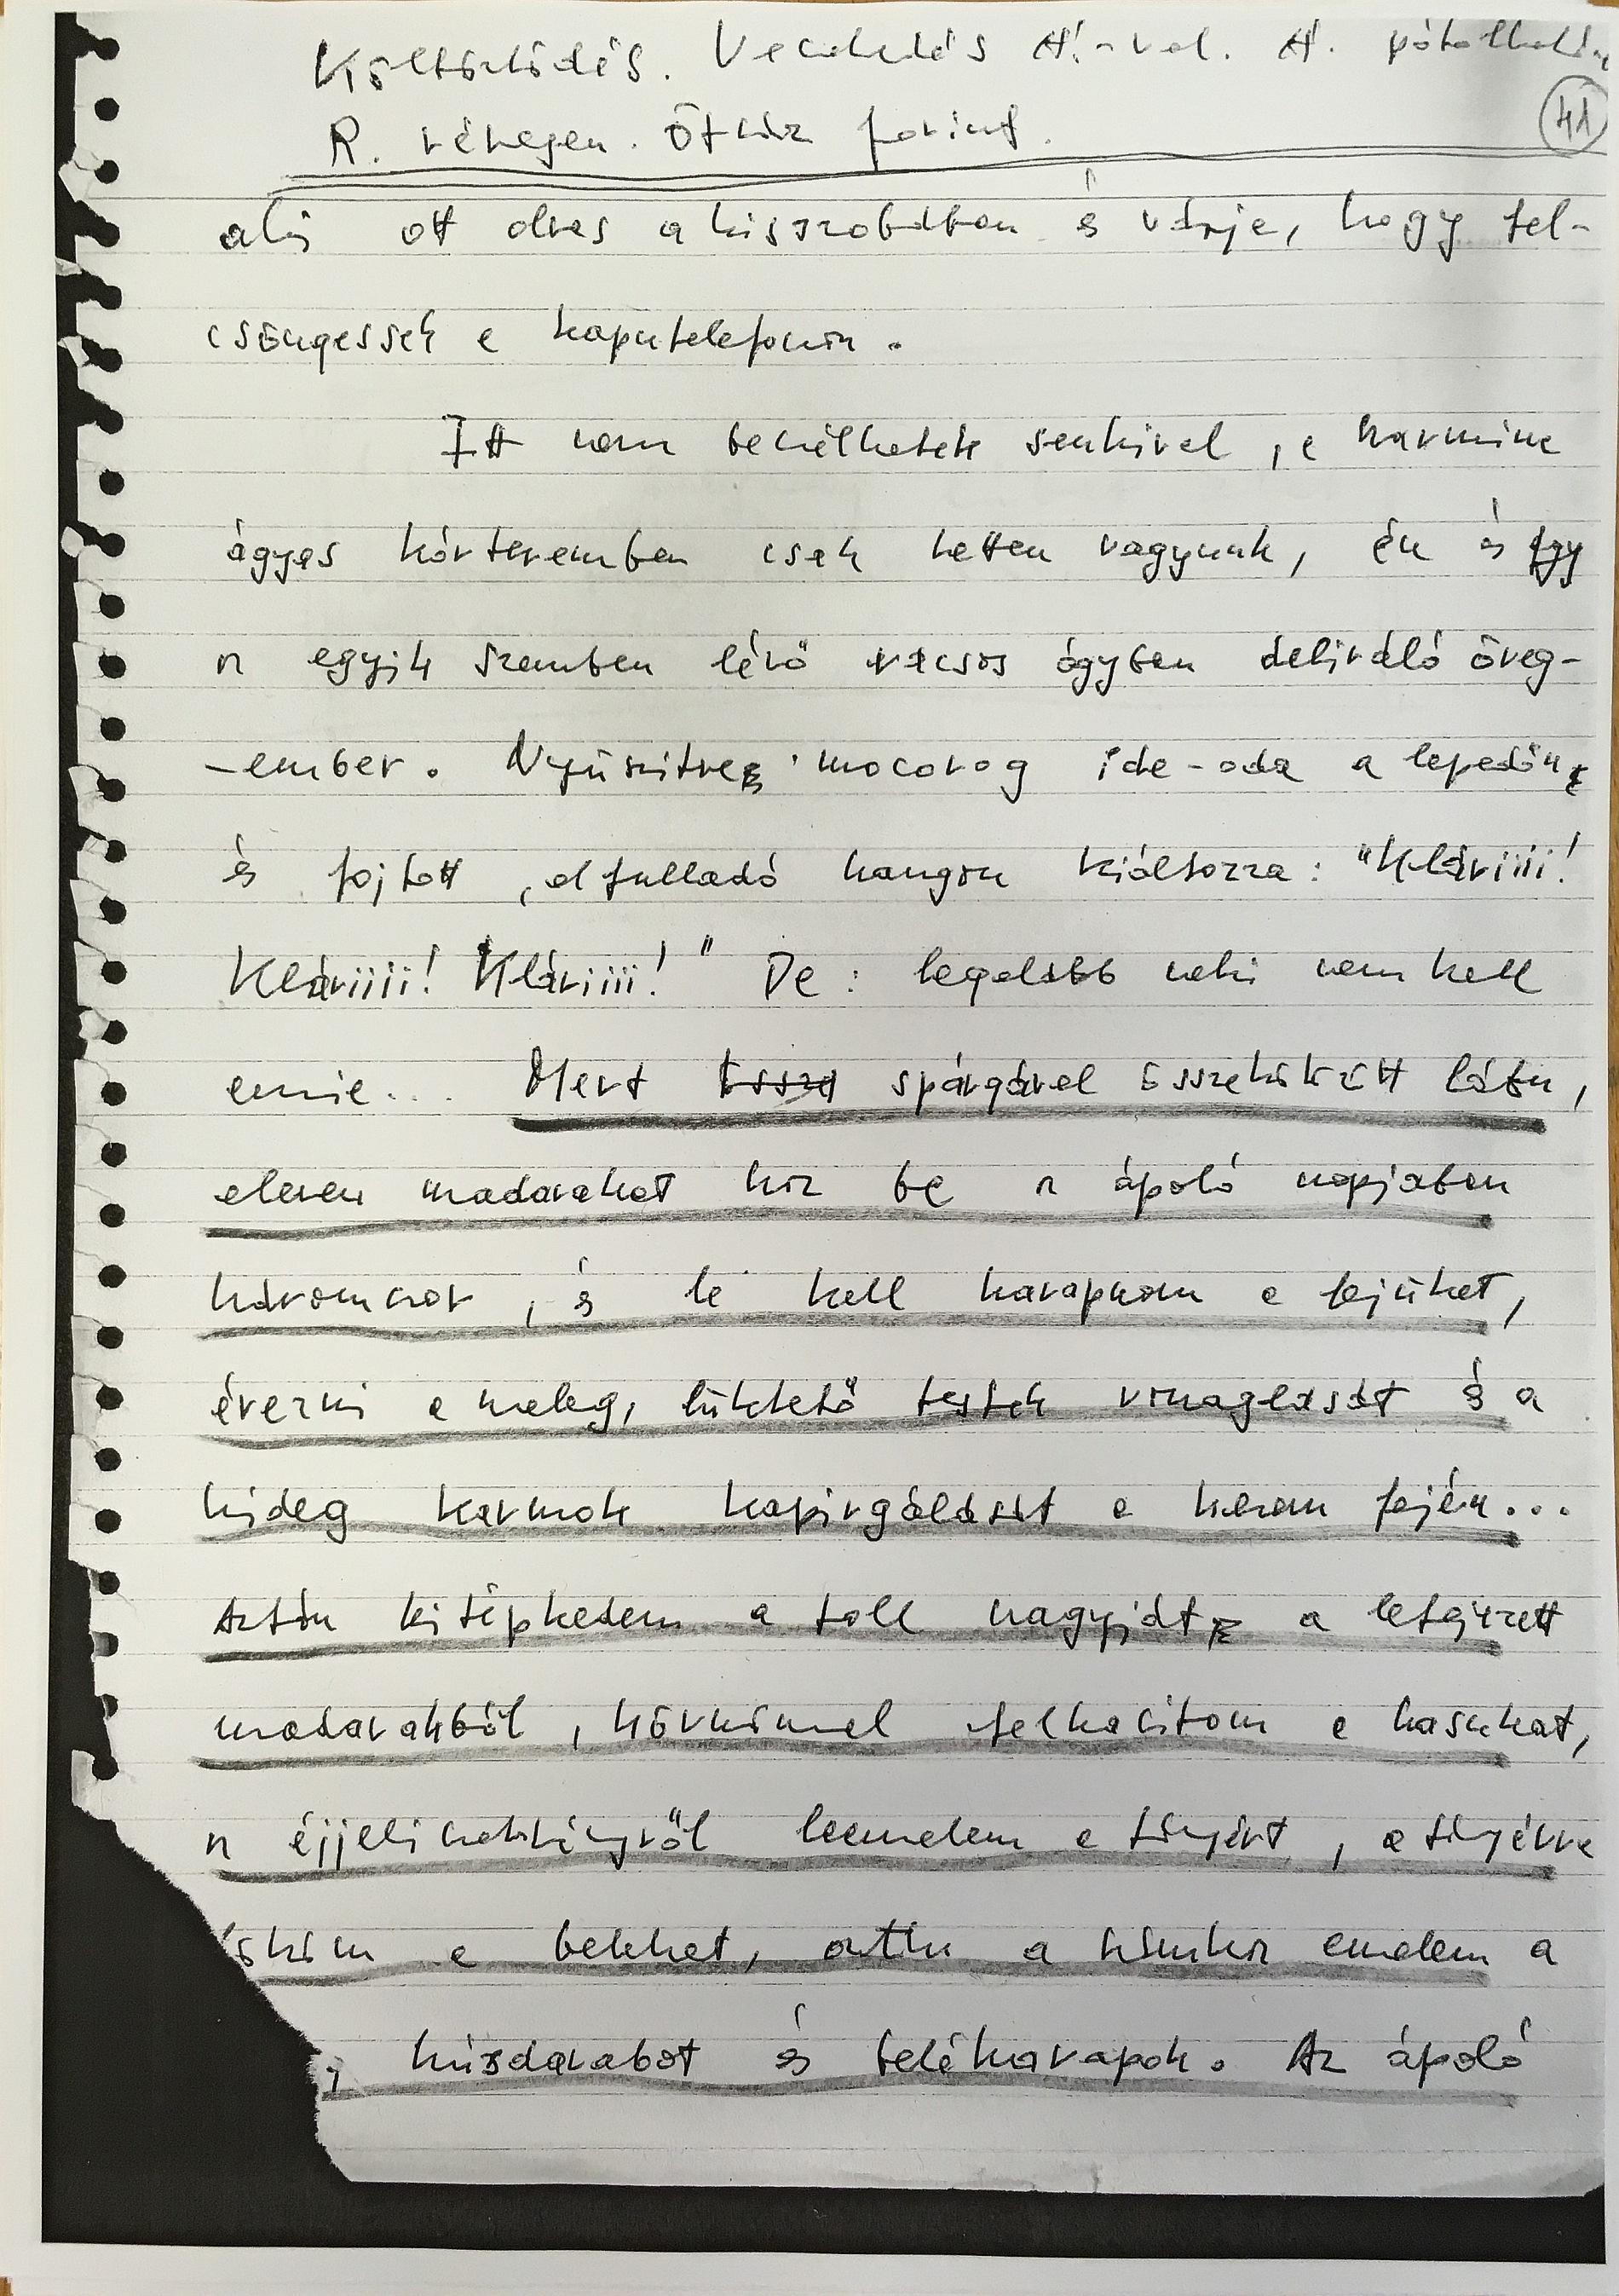 Költözködés. Veszekedés H.-val. H. pótolhatat
R. részegen. Ötszáz forint.
41
aki ott olvas a kisszobában és várja, hogy fel-
csöngessek a kaputelefonon.
Itt nem beszélhetek senkivel, a harminc
ágyas kórteremben csak ketten vagyunk, én és egy
az egyik szemben lévő rácsos ágyban deliráló öreg-
-ember. Nyüszítve mocorog ide-oda a lepedőn
és fojtott, elfulladó hangon kiáltozza: "Kláriiii!
Kláriiii! Kláriiii!" De: legalább neki nem kell
ennie... Mert össze spárgával összekötözött lábú,
eleven madarakat hoz be az ápoló naponta
háromszor, és le kell harapnom a fejüket,
érezni a meleg, lüktető testek vonaglását és a
hideg karmok kapirgálását a kezem fején...
Aztán kitépkedem a toll nagyját a lefejezett
madarakból, körmömmel felhasítom a hasukat,
az éjjeliszekrényről leemelem a tányért, a tányérra
a beleket, aztán a számhoz emelem a
húsdarabot és beléharapok. Az ápoló